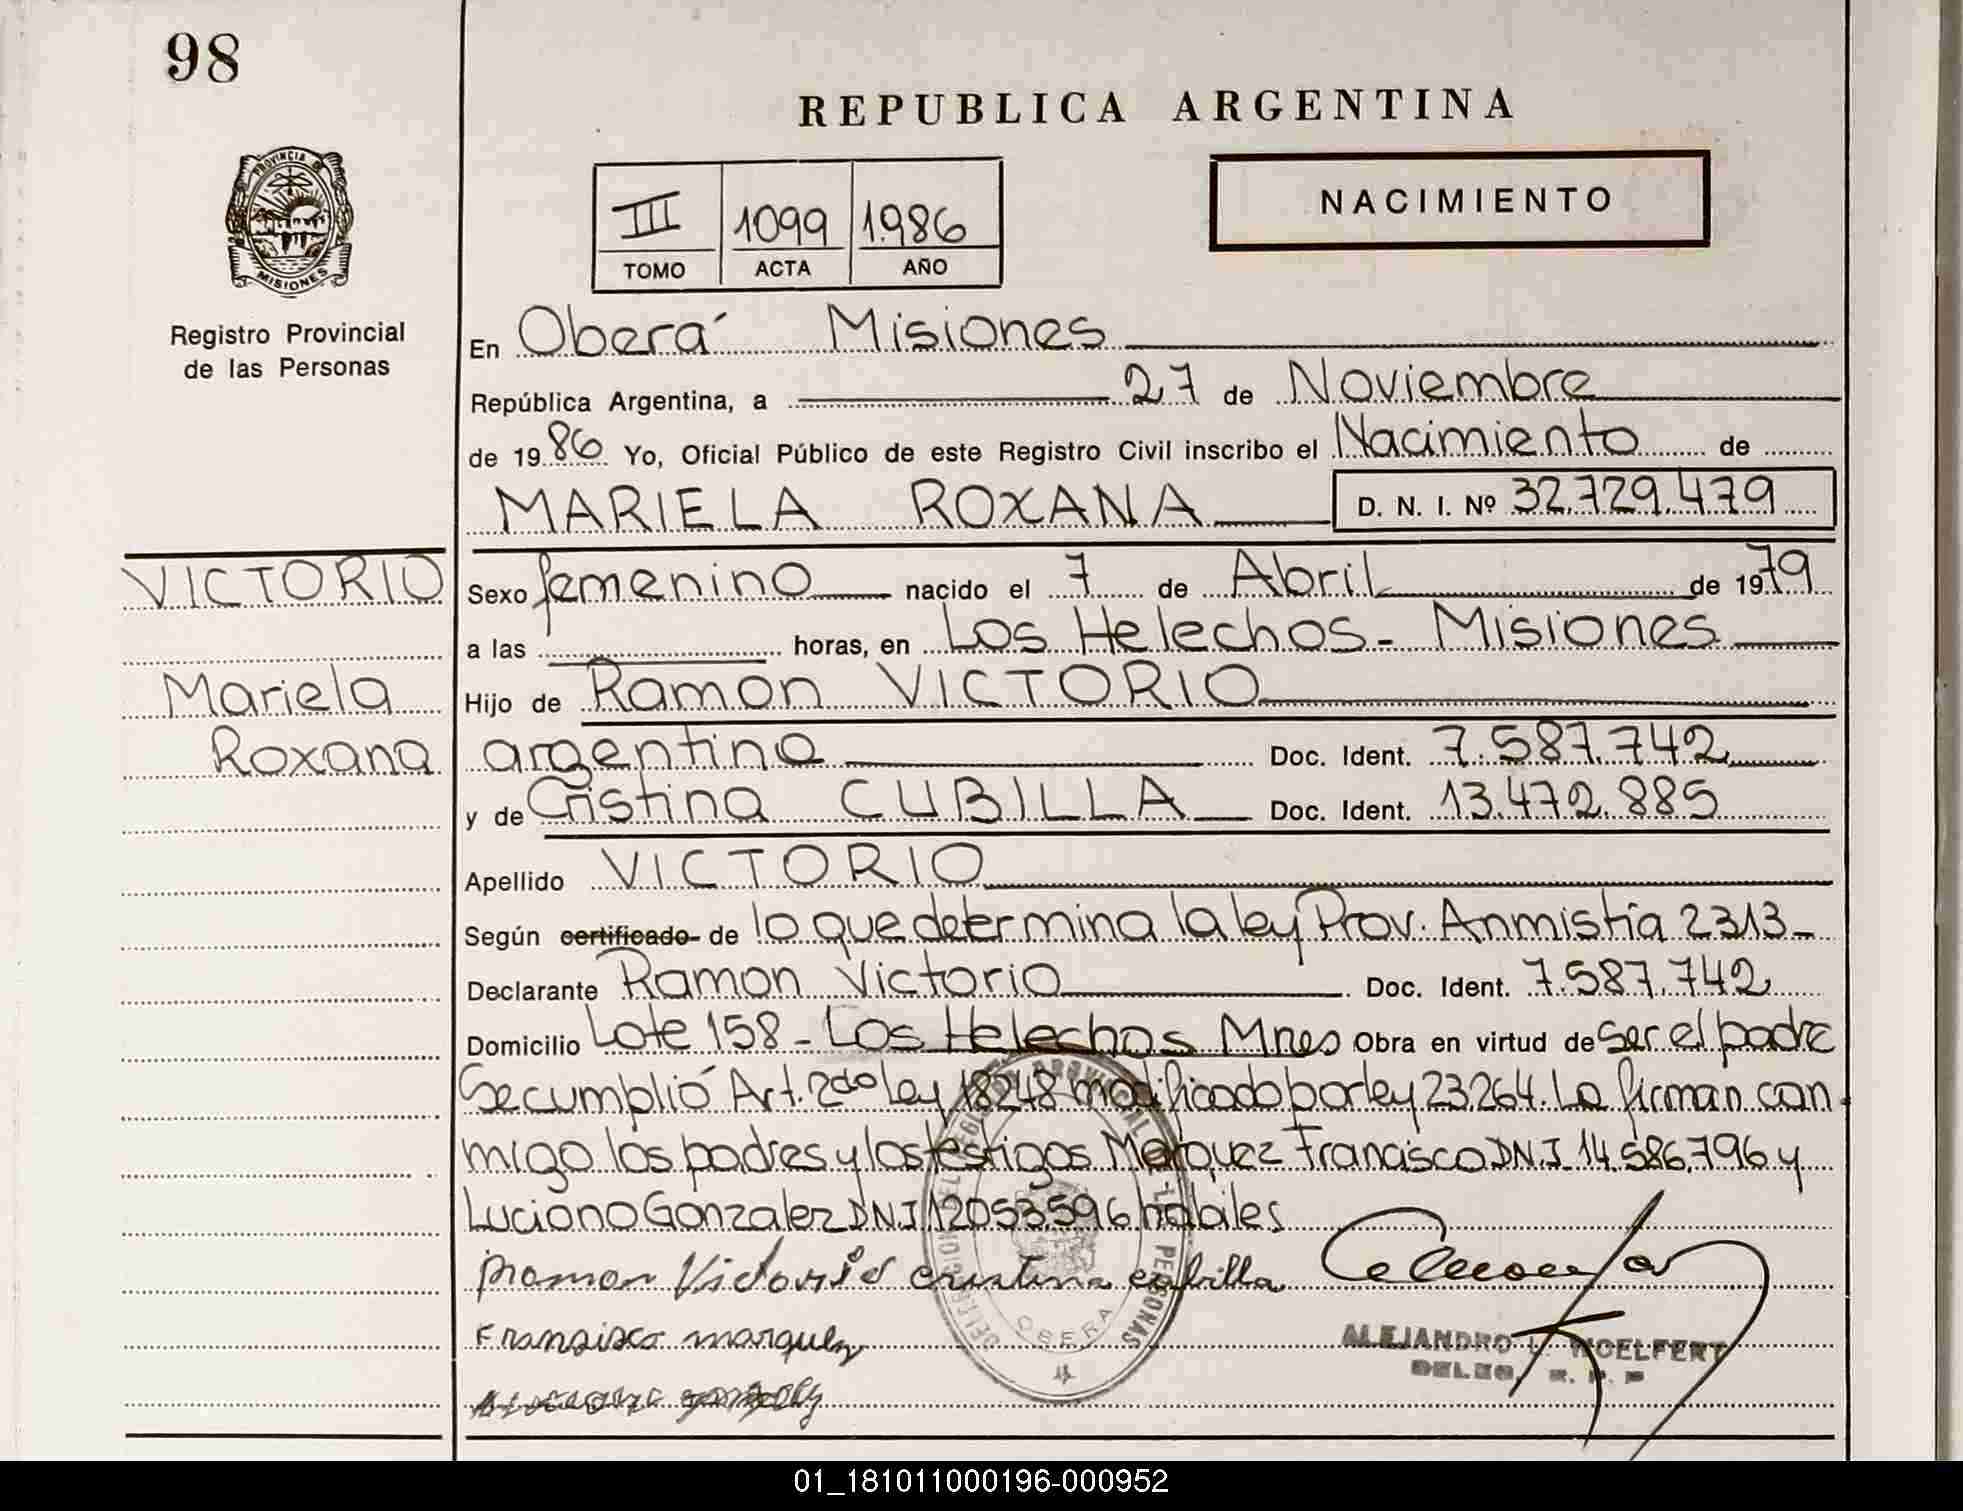 98
REPUBLICA ARGENTINA
PROVINCIA DE
MISIONES
Registro Provincial
de las Personas
III 1099 1.986
TOMO ACTA AÑO
NACIMIENTO
En Oberá Misiones
República Argentina, a 27 de Noviembre
de 19 86 Yo, Oficial Público de este Registro Civil inscribo el Nacimiento de
MARIELA ROXANA D. N. I. Nº 32.729.479
VICTORIO
Mariela
Roxana
Sexo femenino nacido el 7 de Abril de 1979
a las horas, en Los Helechos - Misiones
Hijo de Ramón VICTORIO
argentino Doc. Ident. 7.587.742
y de Cristina CUBILLA Doc. Ident. 13.472.885
Apellido VICTORIO
Según certificado de lo que determina la ley Prov. Anmistía 2313-
Declarante Ramon Victorio Doc. Ident. 7.587.742
Domicilio Lote 158 - Los Helechos Mnes Obra en virtud de ser el padre
Se cumplió Art. 2do Ley 18248 modificado por ley 23.264. La firman con
migo los padres y los testigos Marquez Francisco DN.I 14.586.796 y
Luciano Gonzalez DNI 12053.596 hábiles
Ramon Victorio cristina cubilla
Fransisco marquez
ALEJANDRO L. WOELFERT
DELEG. R. P. P
DELEGACION DEL REGISTRO PROVINCIAL DE LAS PERSONAS
OBERA
01_181011000196-000952